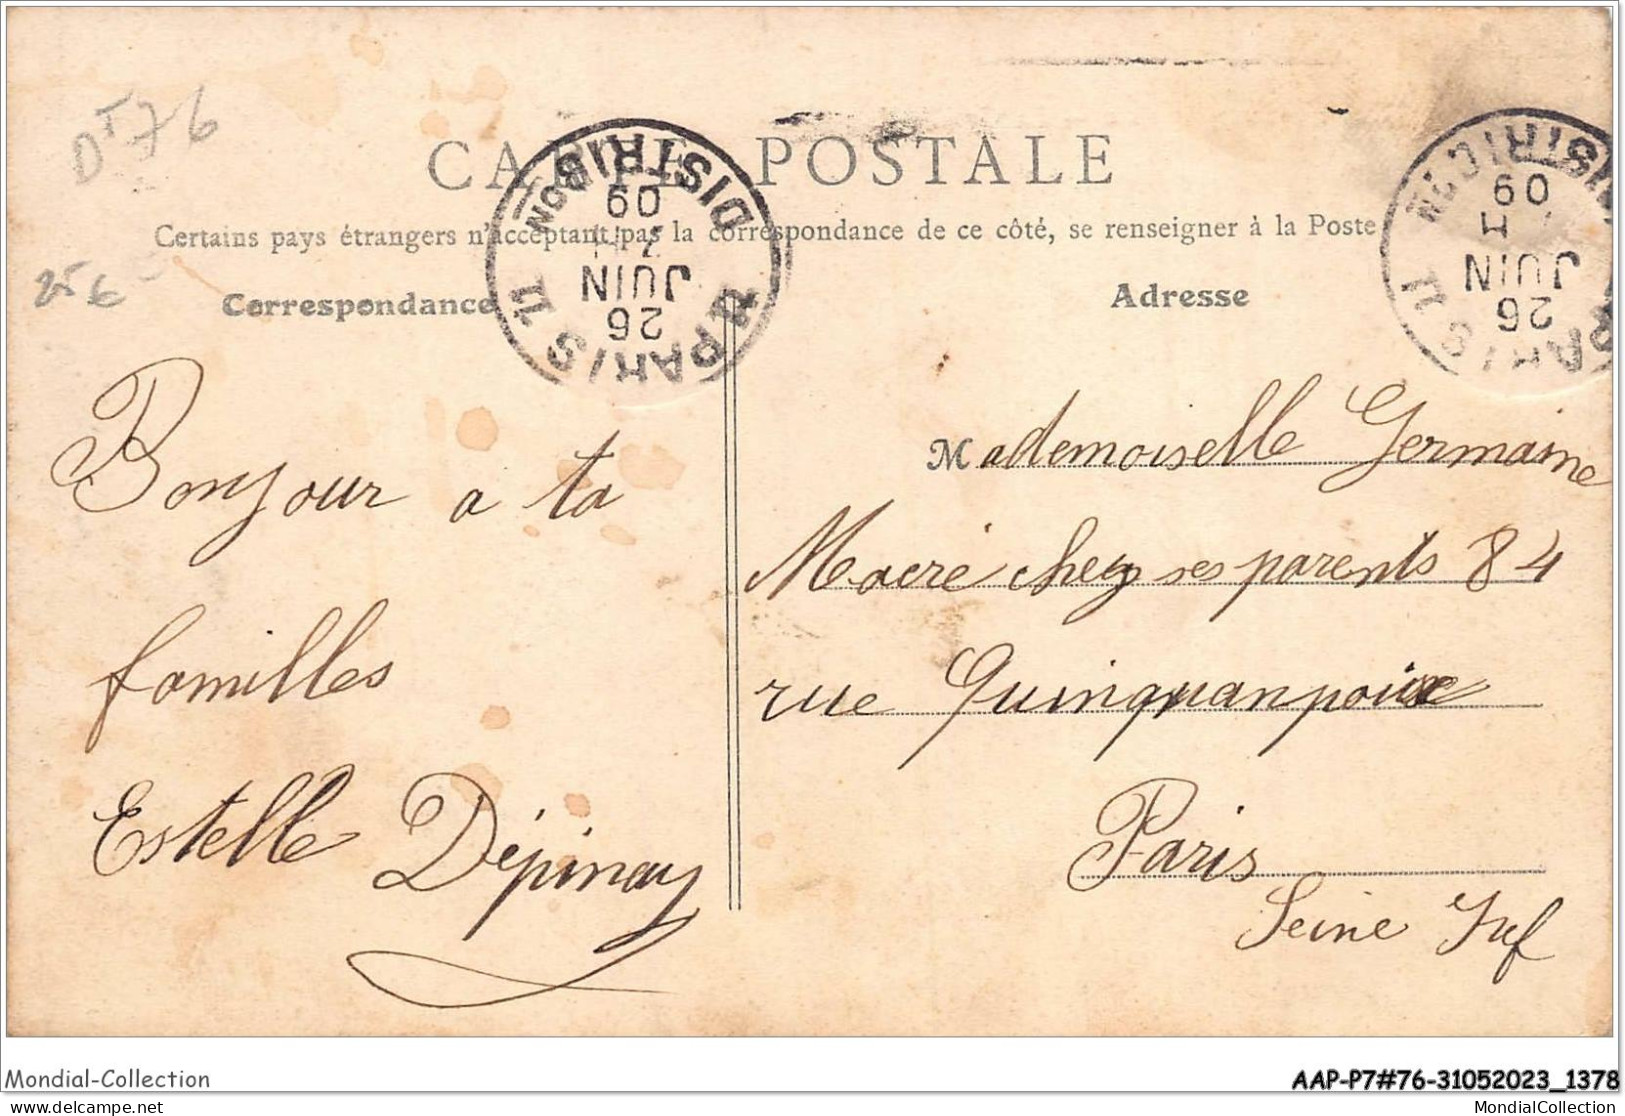 DT 76
CARTE POSTALE
Certains pays étrangers n'acceptant pas la correspondance de ce côté, se renseigner à la Poste
25 €
Correspondance
Adresse
PARIS 11 DISTRIBON
09
7 H
JUIN
26
PARIS 11 DISTRIBON
09
H
JUIN
26
Bonjour a ta
familles
Estelle Dépinay
Mademoiselle Germaine
Macré chez ses parents 84
rue Quinquanpoix
Paris
Seine Inf
Mondial-Collection
AAP-P7#76-31052023_1378
delcampe.net
MondialCollection